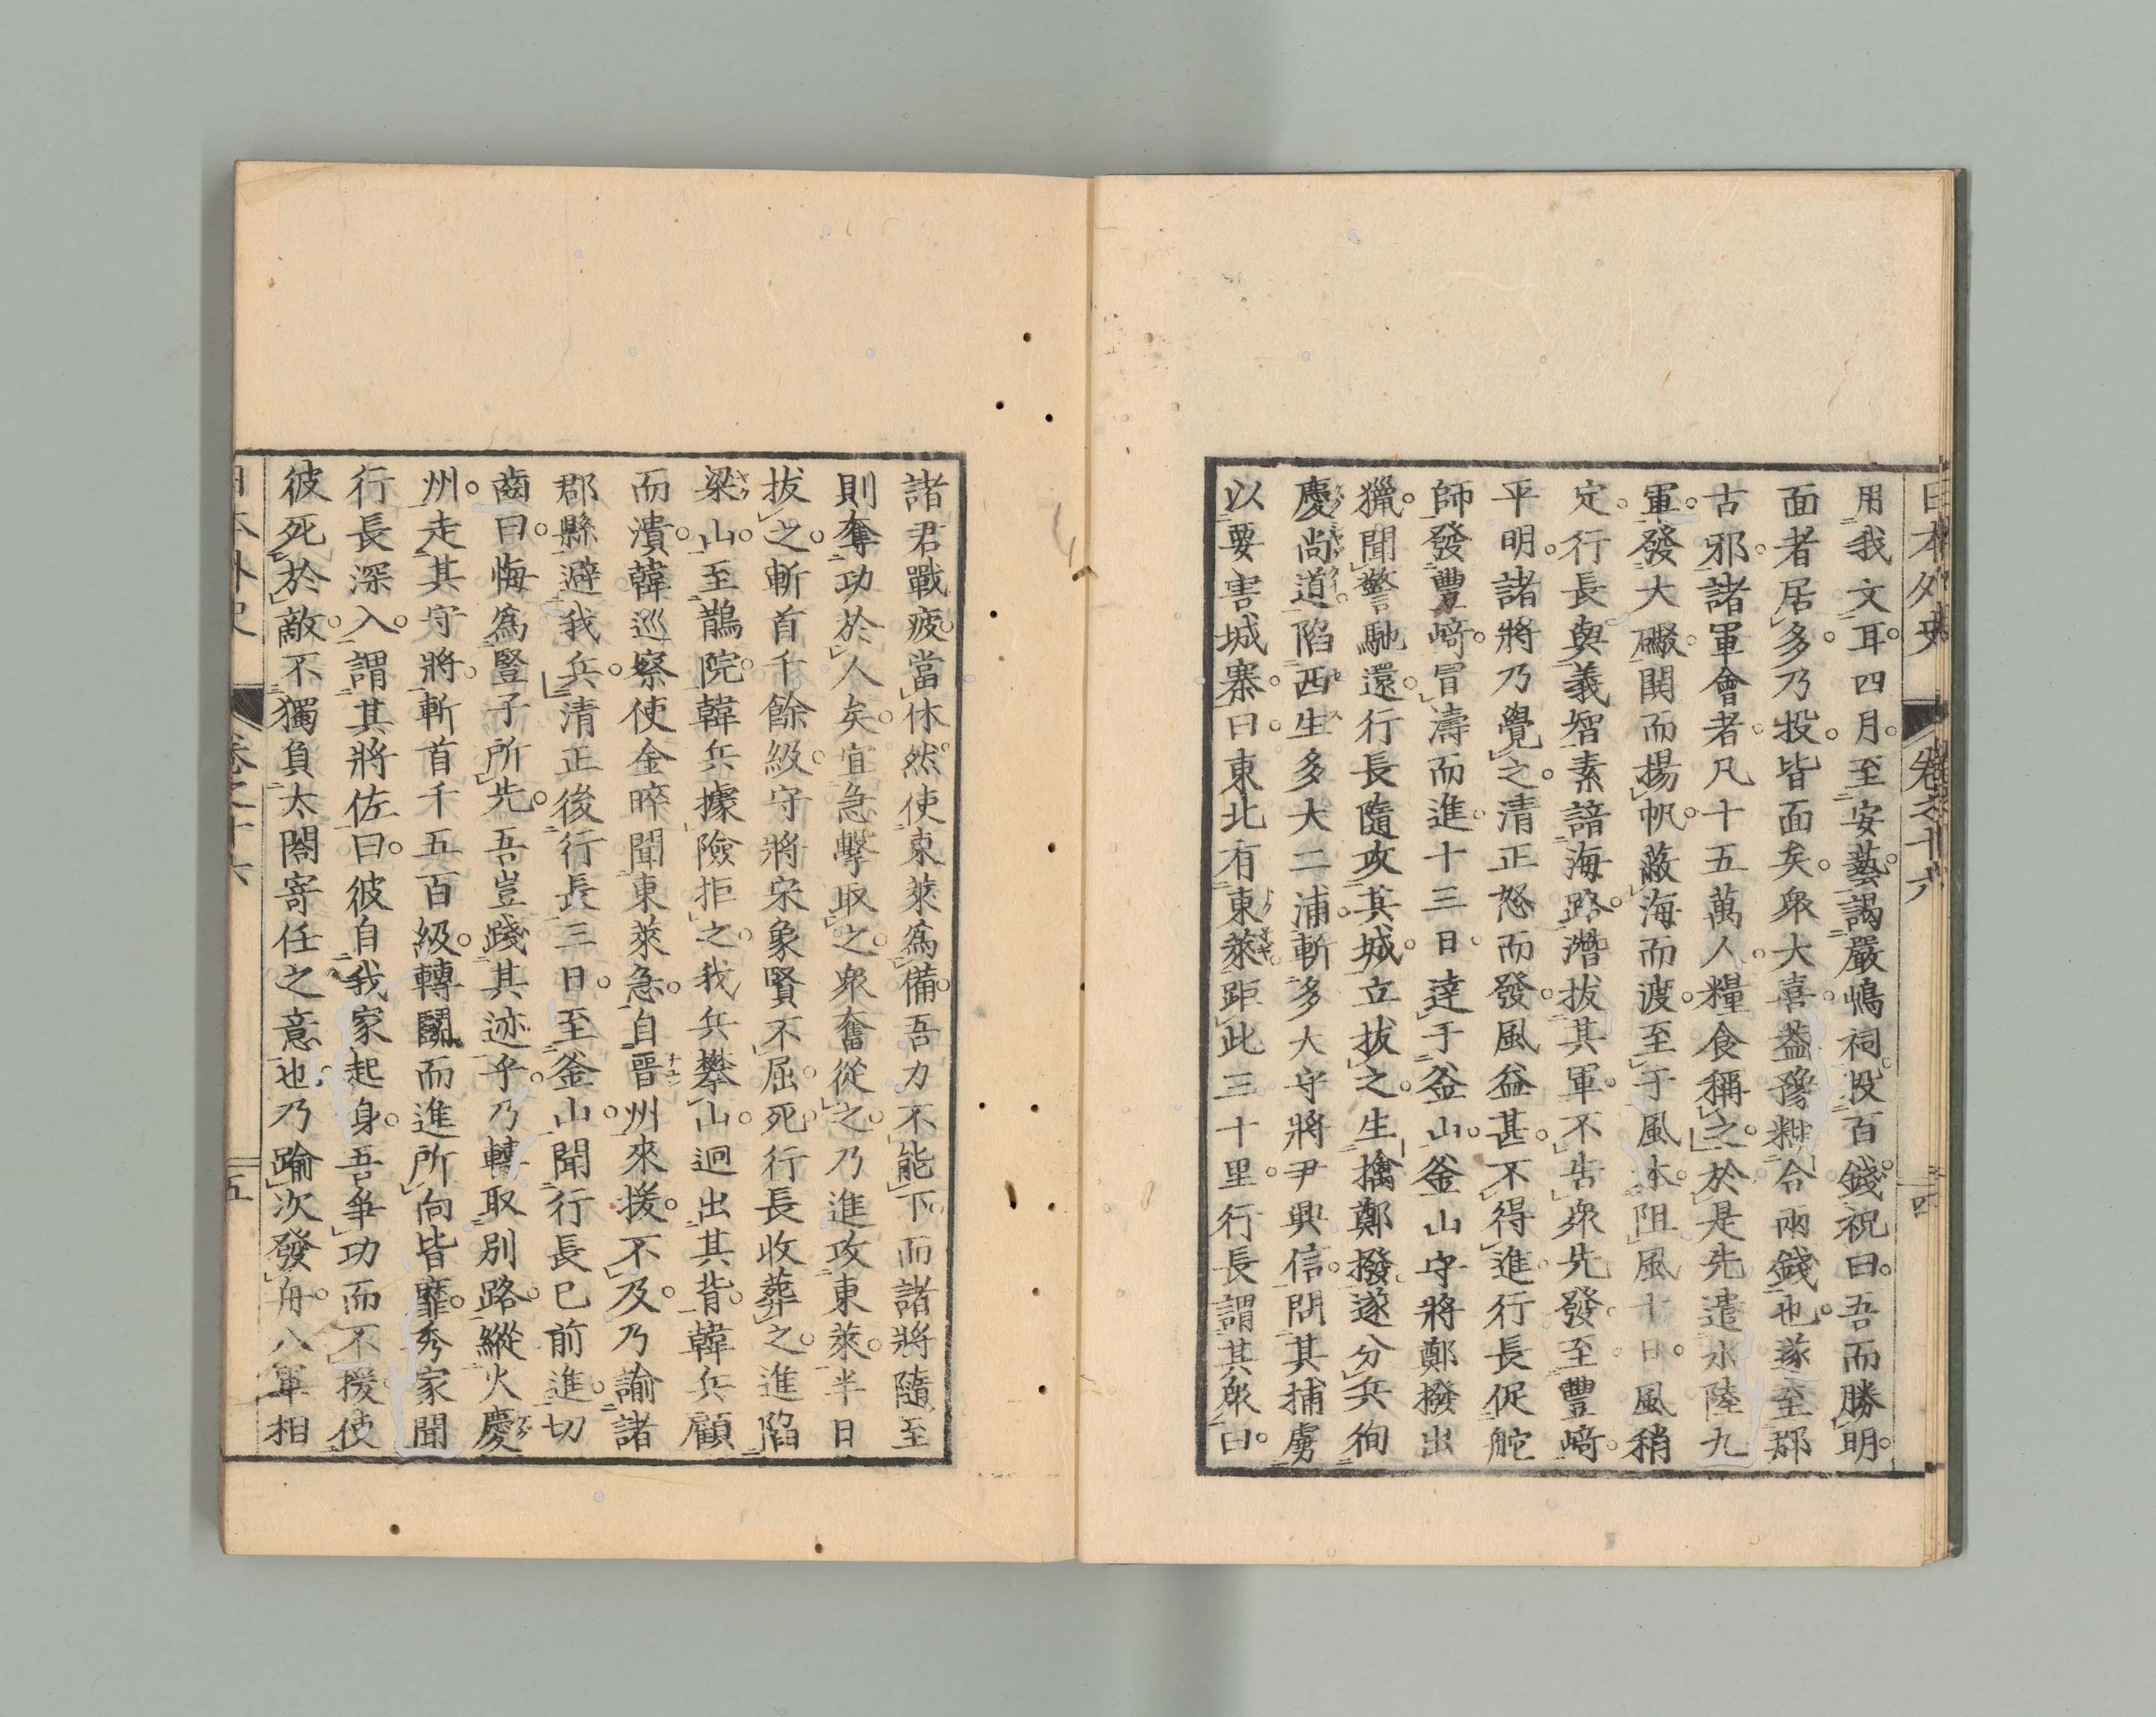 日本外史 卷之十六 四
用我文耳。四月。至安藝。謁嚴嶋祠。投百錢。祝曰。吾而勝明。
面者居多。乃投。皆面矣。衆大喜。蓋豫糊合兩錢也。遂至郡
古邪。諸軍會者。凡十五萬人。糧食稱之。於是先遣水陸九
軍。發大礟。鬨而揚帆。蔽海而渡。至于風本。阻風十日。風稍
定。行長與義智素諳海路。潛拔其軍。不告衆先發。至豐﨑。
平明。諸將乃覺之。清正怒而發。風益甚。不得進。行長促舵
師發豐﨑。冒濤而進。十三日。達于釜山。釜山守將鄭撥出
獵。聞警馳還。行長隨攻其城。立拔之。生擒鄭撥。遂分兵徇
慶尚道。陷西生多大二浦。斬多大守將尹興信。問其捕虜
以要害城寨。曰。東北有東萊。距此三十里。行長謂其衆曰。
諸君戰疲。當休。然使東萊爲備。吾力不能下。而諸將隨至
則奪功於人矣。宜急擊取之。衆奮從之。乃進攻東萊。半日
拔之。斬首千餘級。守將宋象賢不屈死。行長收葬之。進陷
梁山。至鵲院。韓兵據險拒之。我兵攀山。迥出其背。韓兵顧
而潰。韓巡察使金睟聞東萊急。自晋州來援。不及。乃諭諸
郡縣避我兵。清正後行長三日。至釜山。聞行長已前進。切
齒曰。悔爲豎子所先。吾豈踐其迹乎。乃轉取別路。縱火慶
州。走其守將。斬首千五百級。轉鬭而進。所向皆靡。秀家聞
行長深入。謂其將佐曰。彼自我家起身。吾爭功而不援。使
彼死於敵。不獨負太閤寄任之意也。乃踰次發舟。八軍相
日本外史 卷之十六 五